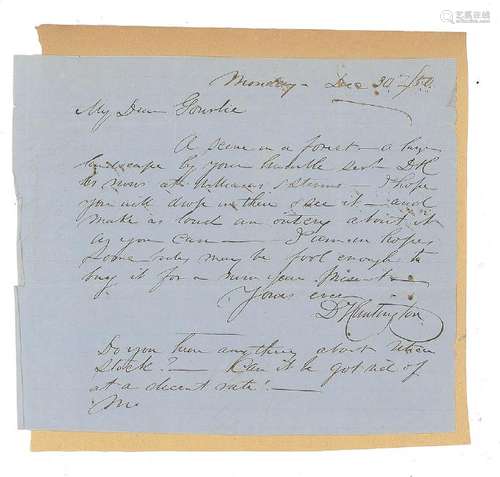 艺典拍卖
www.yidianchina.com
Monday - Dec 30th /50
My Dear Gourlie
A scene in a forest - a large
landscape by your humble servt DH
is now at Williams & Stevens - I hope
you will drop in there & see it - and
make as loud an outcry about it
as you can - I am in hopes
some may be fool enough to
buy it for a new year present -
Yours ever
D Huntington
Do you know anything about
Stock? - Can it be got rid of
at a decent rate? -